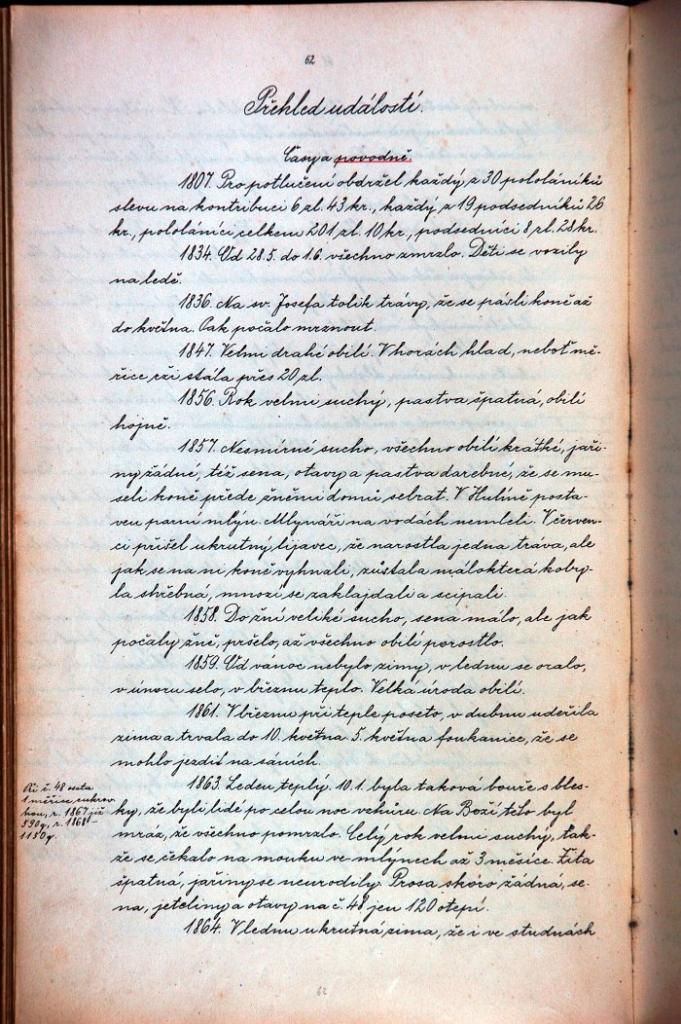 62
Přehled událostí.
Časy a povodně.
1807. Pro potlučení obdržel každý z 30 pololáníků
slevu na kontribuci 6 zl. 43 kr., každý z 19 podsedníků 26
kr., pololáníci celkem 201 zl. 10 kr., podsedníci 8 zl. 28 kr.
1834. Od 28.5. do 1.6. všechno zmrzlo. Děti se vozily
na ledě.
1836. Na sv. Josefa tolik trávy, že se pásli koně až
do května. Pak počalo mrznout.
1847. Velmi drahé obilí. V horách hlad, neboť mě-
řice rži stála přes 20 zl.
1856. Rok velmi suchý, pastva špatná, obilí
hojně.
1857. Nesmírné sucho, všechno obilí kratké, jaři-
ny žádné, též sena, otavy a pastva darebné, že se mu-
seli koně přede žněmi domů sebrat. V Hulíně posta-
ven parní mlýn. Mlynáři na vodách nemleli. V červen-
ci přišel ukrutný lijavec, že narostla jedna tráva, ale
jak se na ni koně vyhnali, zůstala málokterá koby-
la shřebná, mnozí se zaklajdali a scípali.
1858. Do žní veliké sucho, sena málo, ale jak
počaly žně, pršelo, až všechno obilí porostlo.
1859. Od vánoc nebylo zimy, v lednu se oralo,
v únoru selo, v březnu teplo. Velká úroda obilí.
1861. V březnu při teple poseto, v dubnu udeřila
zima a trvala do 10. května. 5. května foukanice, že se
mohlo jezdit na sáních.
1863. Leden teplý. 10.1. byla taková bouře s bles-
ky, že byli lidé po celou noc vzhůru. Na Boží tělo byl
mráz, že všechno pomrzlo. Celý rok velmi suchý, tak-
že se čekalo na mouku ve mlýnech až 3 měsíce. Žita
špatná, jařiny se neurodily. Prosa skoro žádná, se-
na, jeteliny a otavy na č. 48 jen 120 otepí.
1864. V lednu ukrutná zima, že i ve studnách
Při č. 48 seta
1 měřice cukrov
kou, r. 1867 již
590 q, r. 1868
1150 q.
62